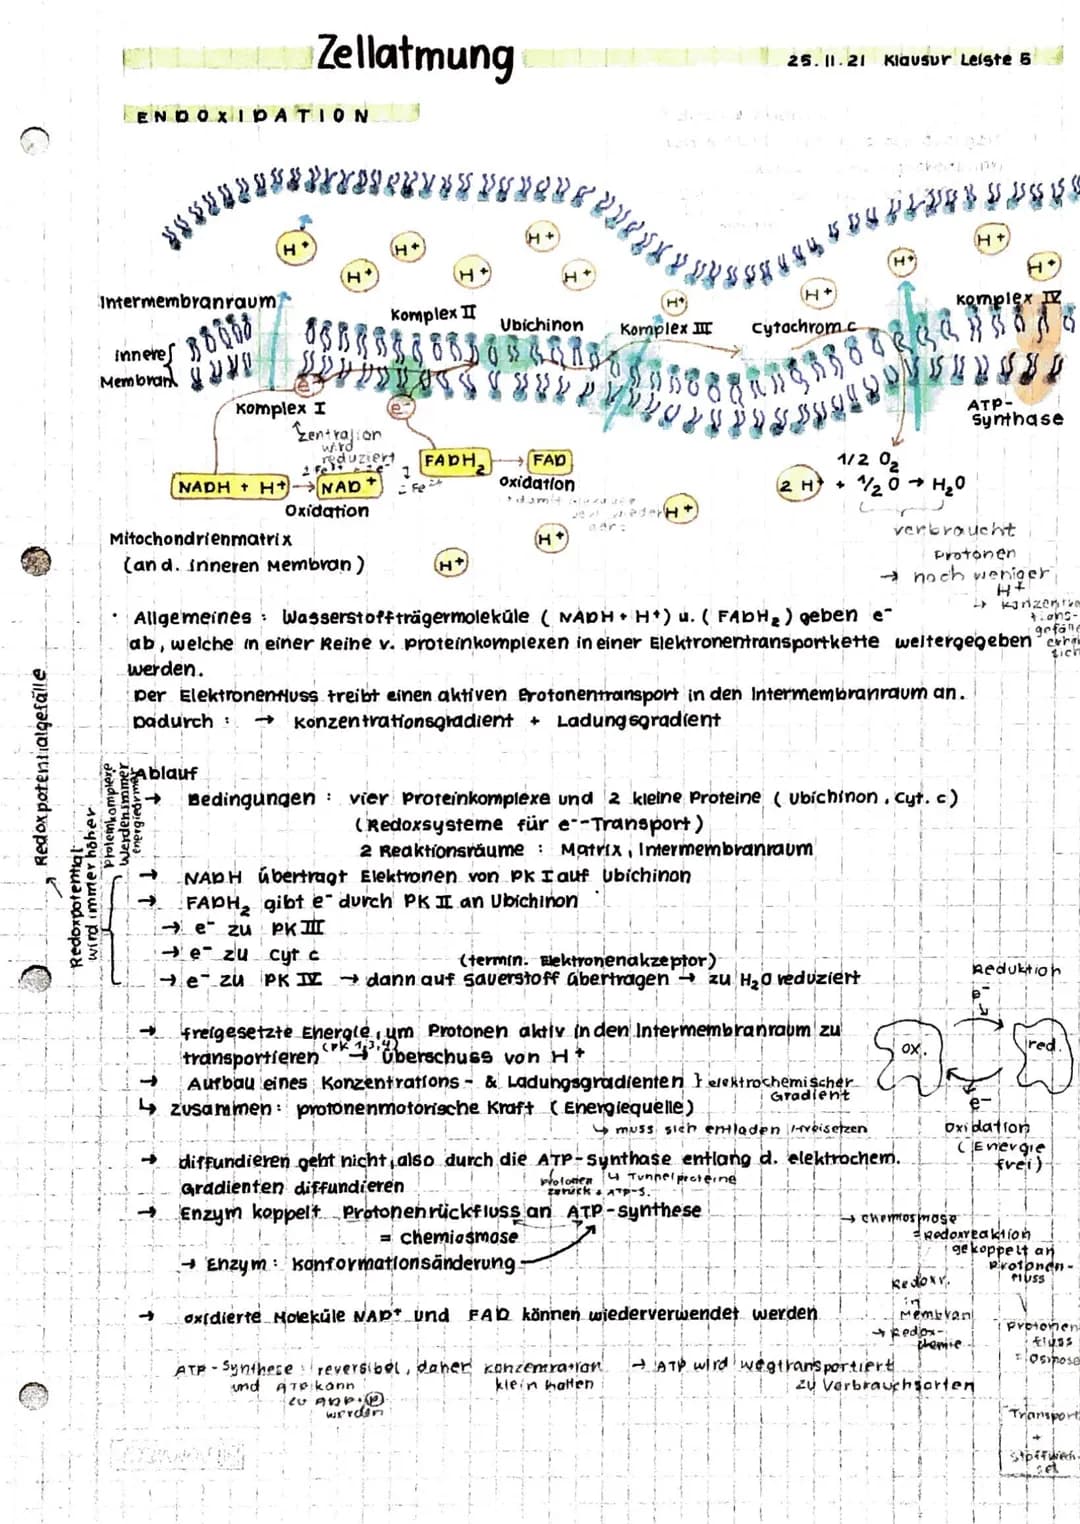 Zellatmung
25.11.21 Klausur Leiste 5
ENDOXIDATION
H+
H+
H+
H+
H+
H+
H+
H+
H+
H+
H+
Intermembranraum
Komplex II
Ubichinon
Komplex III
Cytochrom c
Komplex IV
inneres
Membran
e-
e-
Komplex I
ATP-
Synthase
Zentralion
wird
reduziert
FADH2 → FAD
Oxidation
NADH + H+ → NAD+
Oxidation
1/2 O2
2 H+ + 1/2 O → H2O
verbraucht
Protonen
→ noch weniger
H+
H+
H+
H+
Mitochondrienmatrix
(an d. inneren Membran)
· Allgemeines : Wasserstoffträgermoleküle ( NADH + H+) u. ( FADH2 ) geben e-
ab, welche in einer Reihe v. Proteinkomplexen in einer Elektronentransportkette weitergegeben
werden.
Der Elektronenfluss treibt einen aktiven Protonentransport in den Intermembranraum an.
Dadurch : → Konzentrationsgradient + Ladungsgradient
Redoxpotentialgefälle
Redoxpotential
wird immer höher
Proteinkomplexe
werden immer
energieärmer
Ablauf
→ Bedingungen : vier Proteinkomplexe und 2 kleine Proteine ( Ubichinon, Cyt. c)
(Redoxsysteme für e--Transport)
2 Reaktionsräume : Matrix, Intermembranraum
→ NADH überträgt Elektronen von PK I auf Ubichinon
→ FADH2 gibt e- durch PK II an Ubichinon
→ e- zu PK III
→ e- zu cyt c
(termin. Elektronenakzeptor)
→ e- zu PK IV → dann auf Sauerstoff übertragen → zu H2O reduziert
→ freigesetzte Energie, um Protonen aktiv in den Intermembranraum zu
transportieren (PK 1,3,4) → Überschuss von H+
→ Aufbau eines Konzentrations- & Ladungsgradienten } elektrochemischer
Gradient
↳ zusammen: protonenmotorische Kraft ( Energiequelle)
↳ muss sich entladen / freisetzen
Reduktion
e-
ox.
red.
e-
Oxidation
(Energie
frei)
→ diffundieren geht nicht, also durch die ATP-Synthase entlang d. elektrochem.
Gradienten diffundieren
↳ Tunnelproteine
Protonen
zurück
→ Enzym koppelt Protonenrückfluss an ATP-synthese
= chemiosmose
→ Enzym: Konformationsänderung
→ chemiosmose
= Redoxreaktion
gekoppelt an
Protonen-
fluss
Redoxr.
in
Membran
→ Redox-
chemie
Protonen
fluss
= Osmose
→ oxidierte Moleküle NAD+ und FAD können wiederverwendet werden
ATP-Synthese : reversibel, daher Konzentration → ATP wird wegtransportiert
und ATP kann klein halten zu Verbrauchsorten
zu ADP + P
werden
Transport
+
Stoffwech-
sel